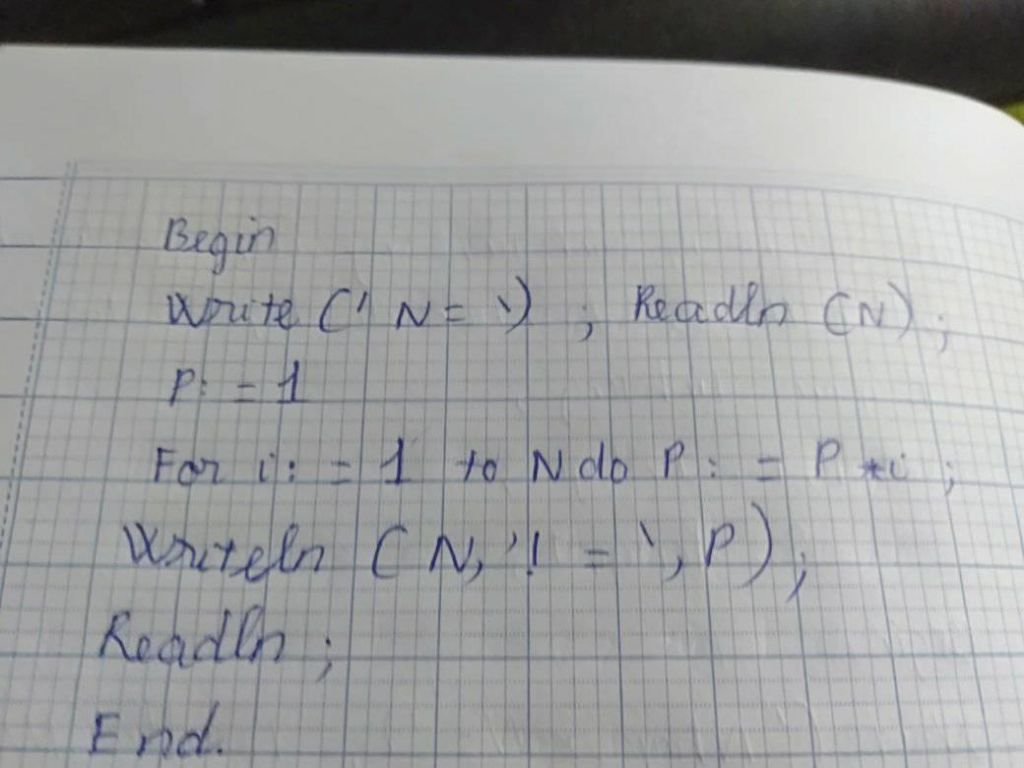 Begin
Write (' N = ') ; Readln (N) ;
P: = 1
For i: = 1 to N do P : = P *i ;
Writeln ( N, '! = ', P) ;
Readln ;
End.